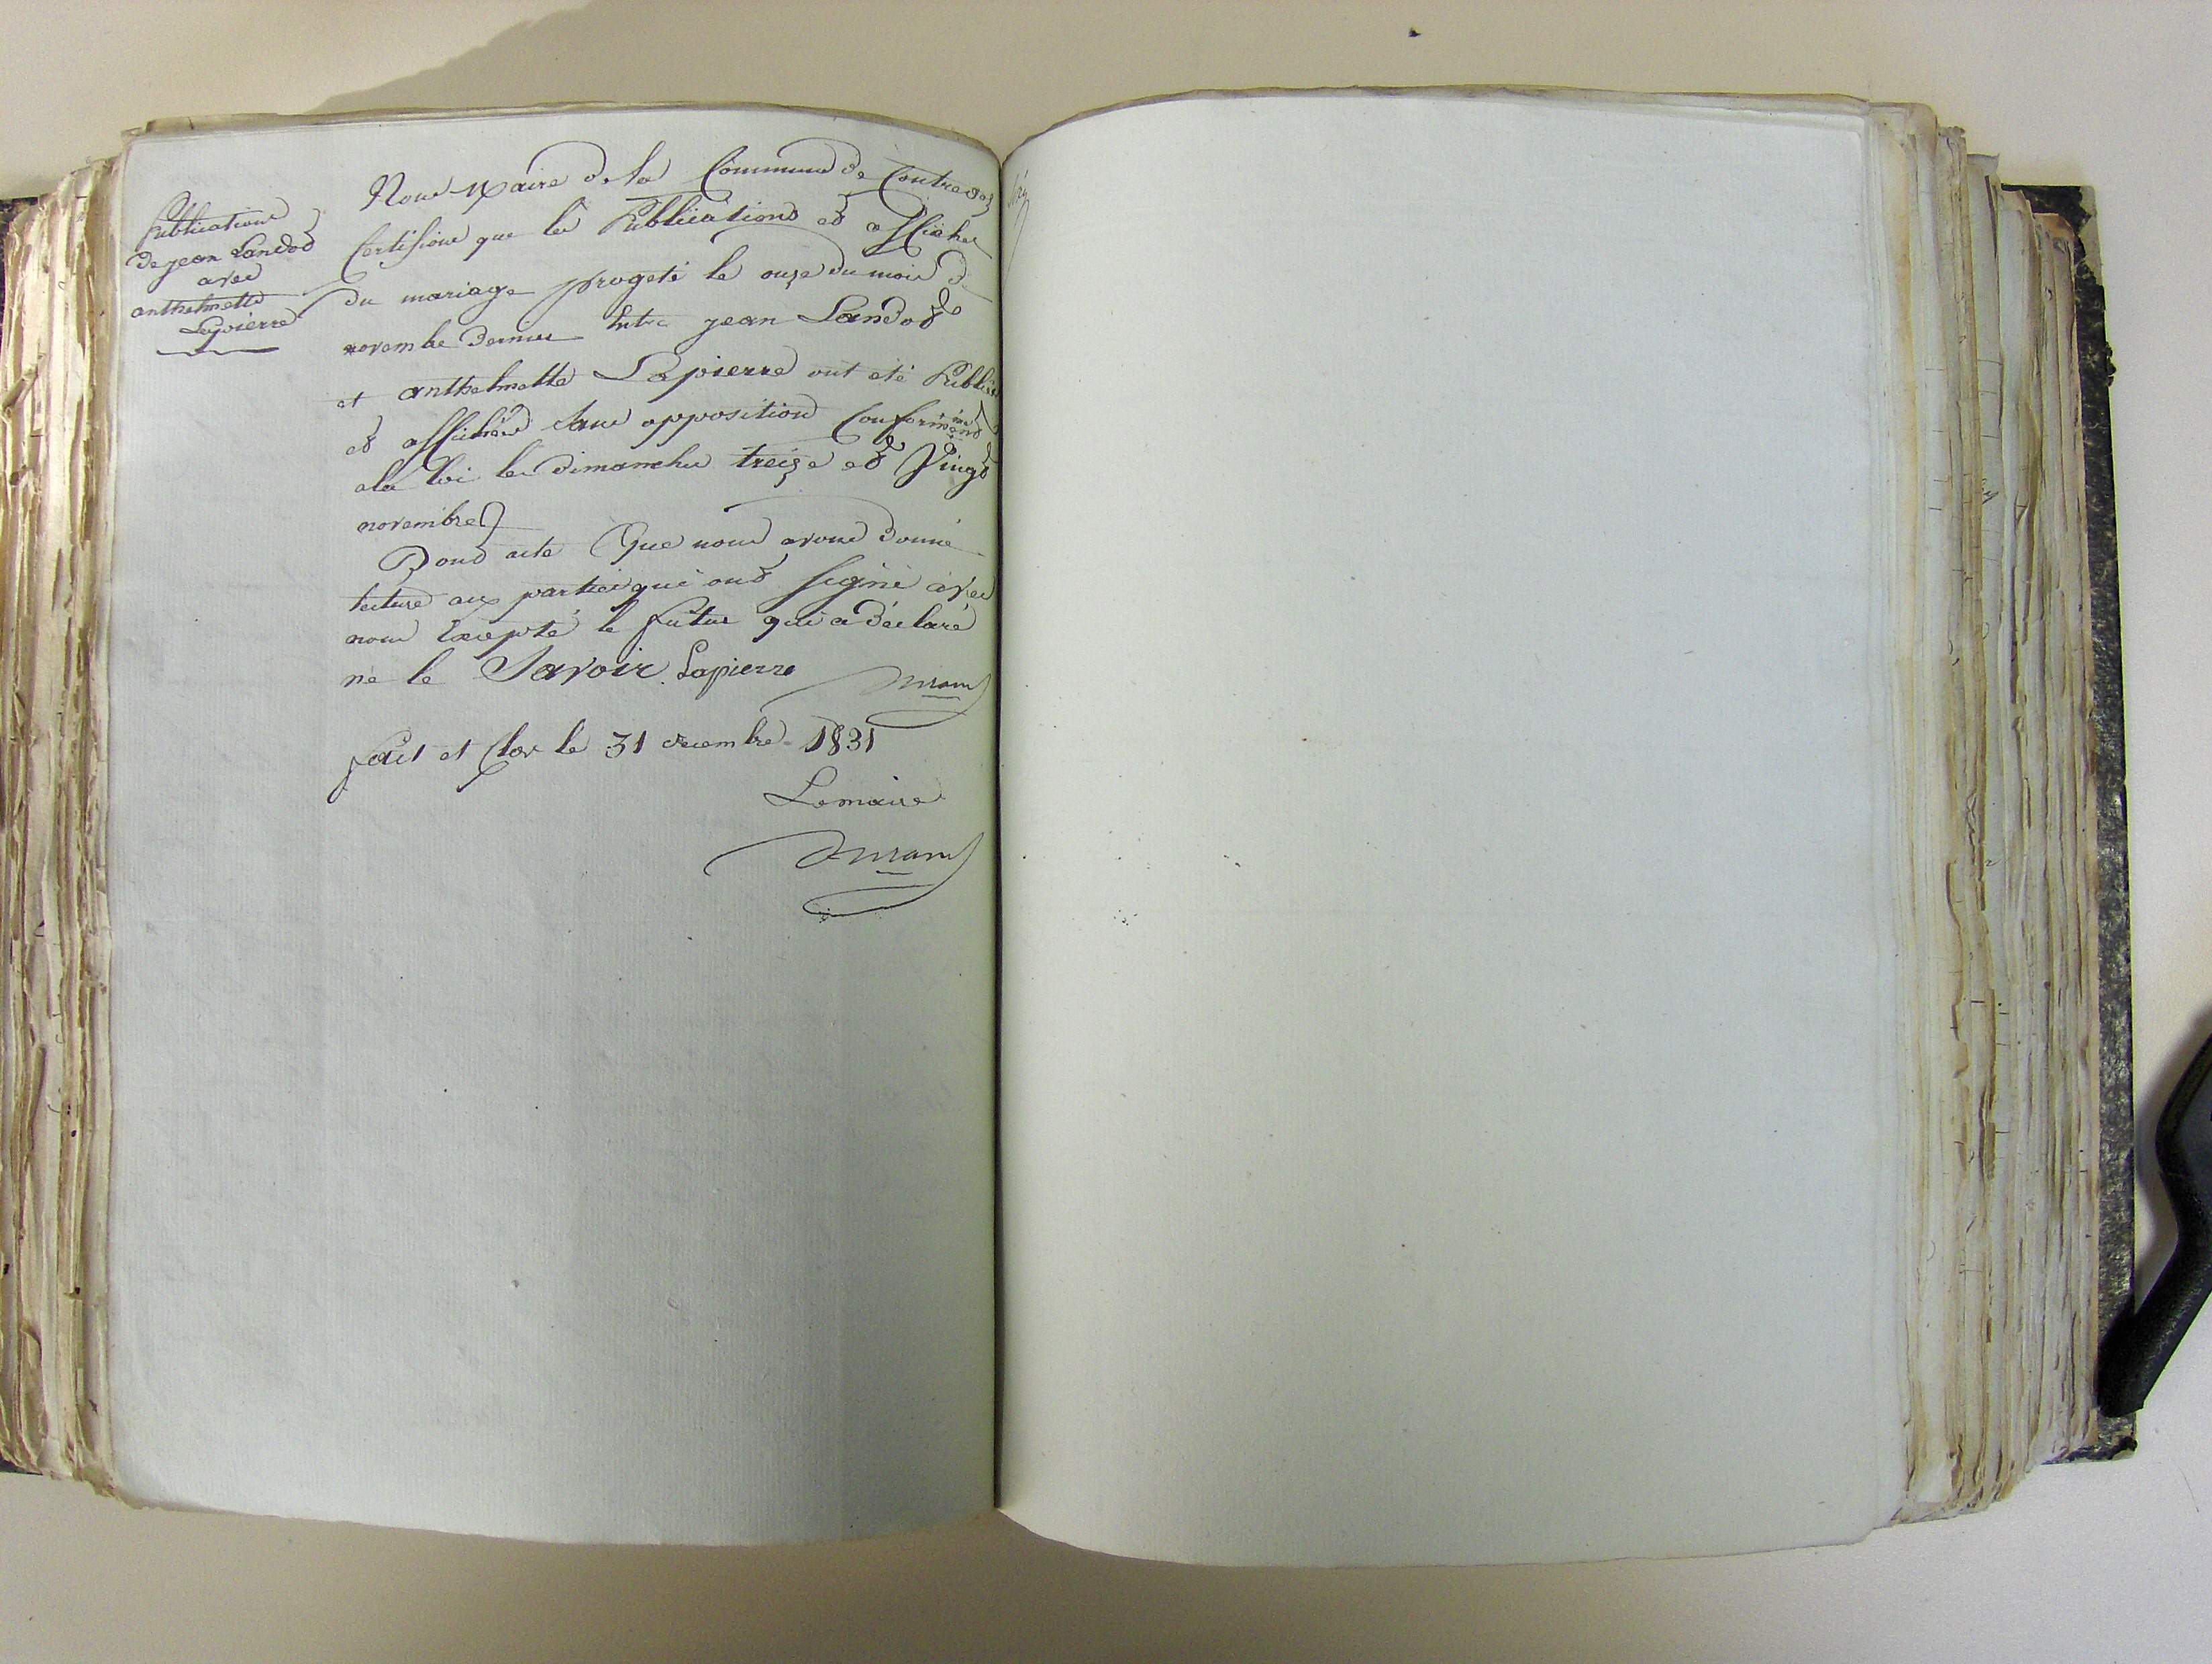 Publications
de jean Landot
avec
anthelmette
Lapierre
Nous Maire de la Commune de Contrevoz
Certifions que les Publications et affiches
du mariage progeté le onze du mois de
novembre dernier Entre jean Landot
et anthelmette Lapierre ont été Publiées
et affichées Sans opposition Conformément
a la loi les dimanches treize et Vingt
novembre
Dont acte Que nous avons donné
lecture aux parties qui ont signé avec
nous Excepté le futur qui a déclaré
ne le Savoir. Lapierre
fait et Clos le 31 decembre 1831
Lemaire